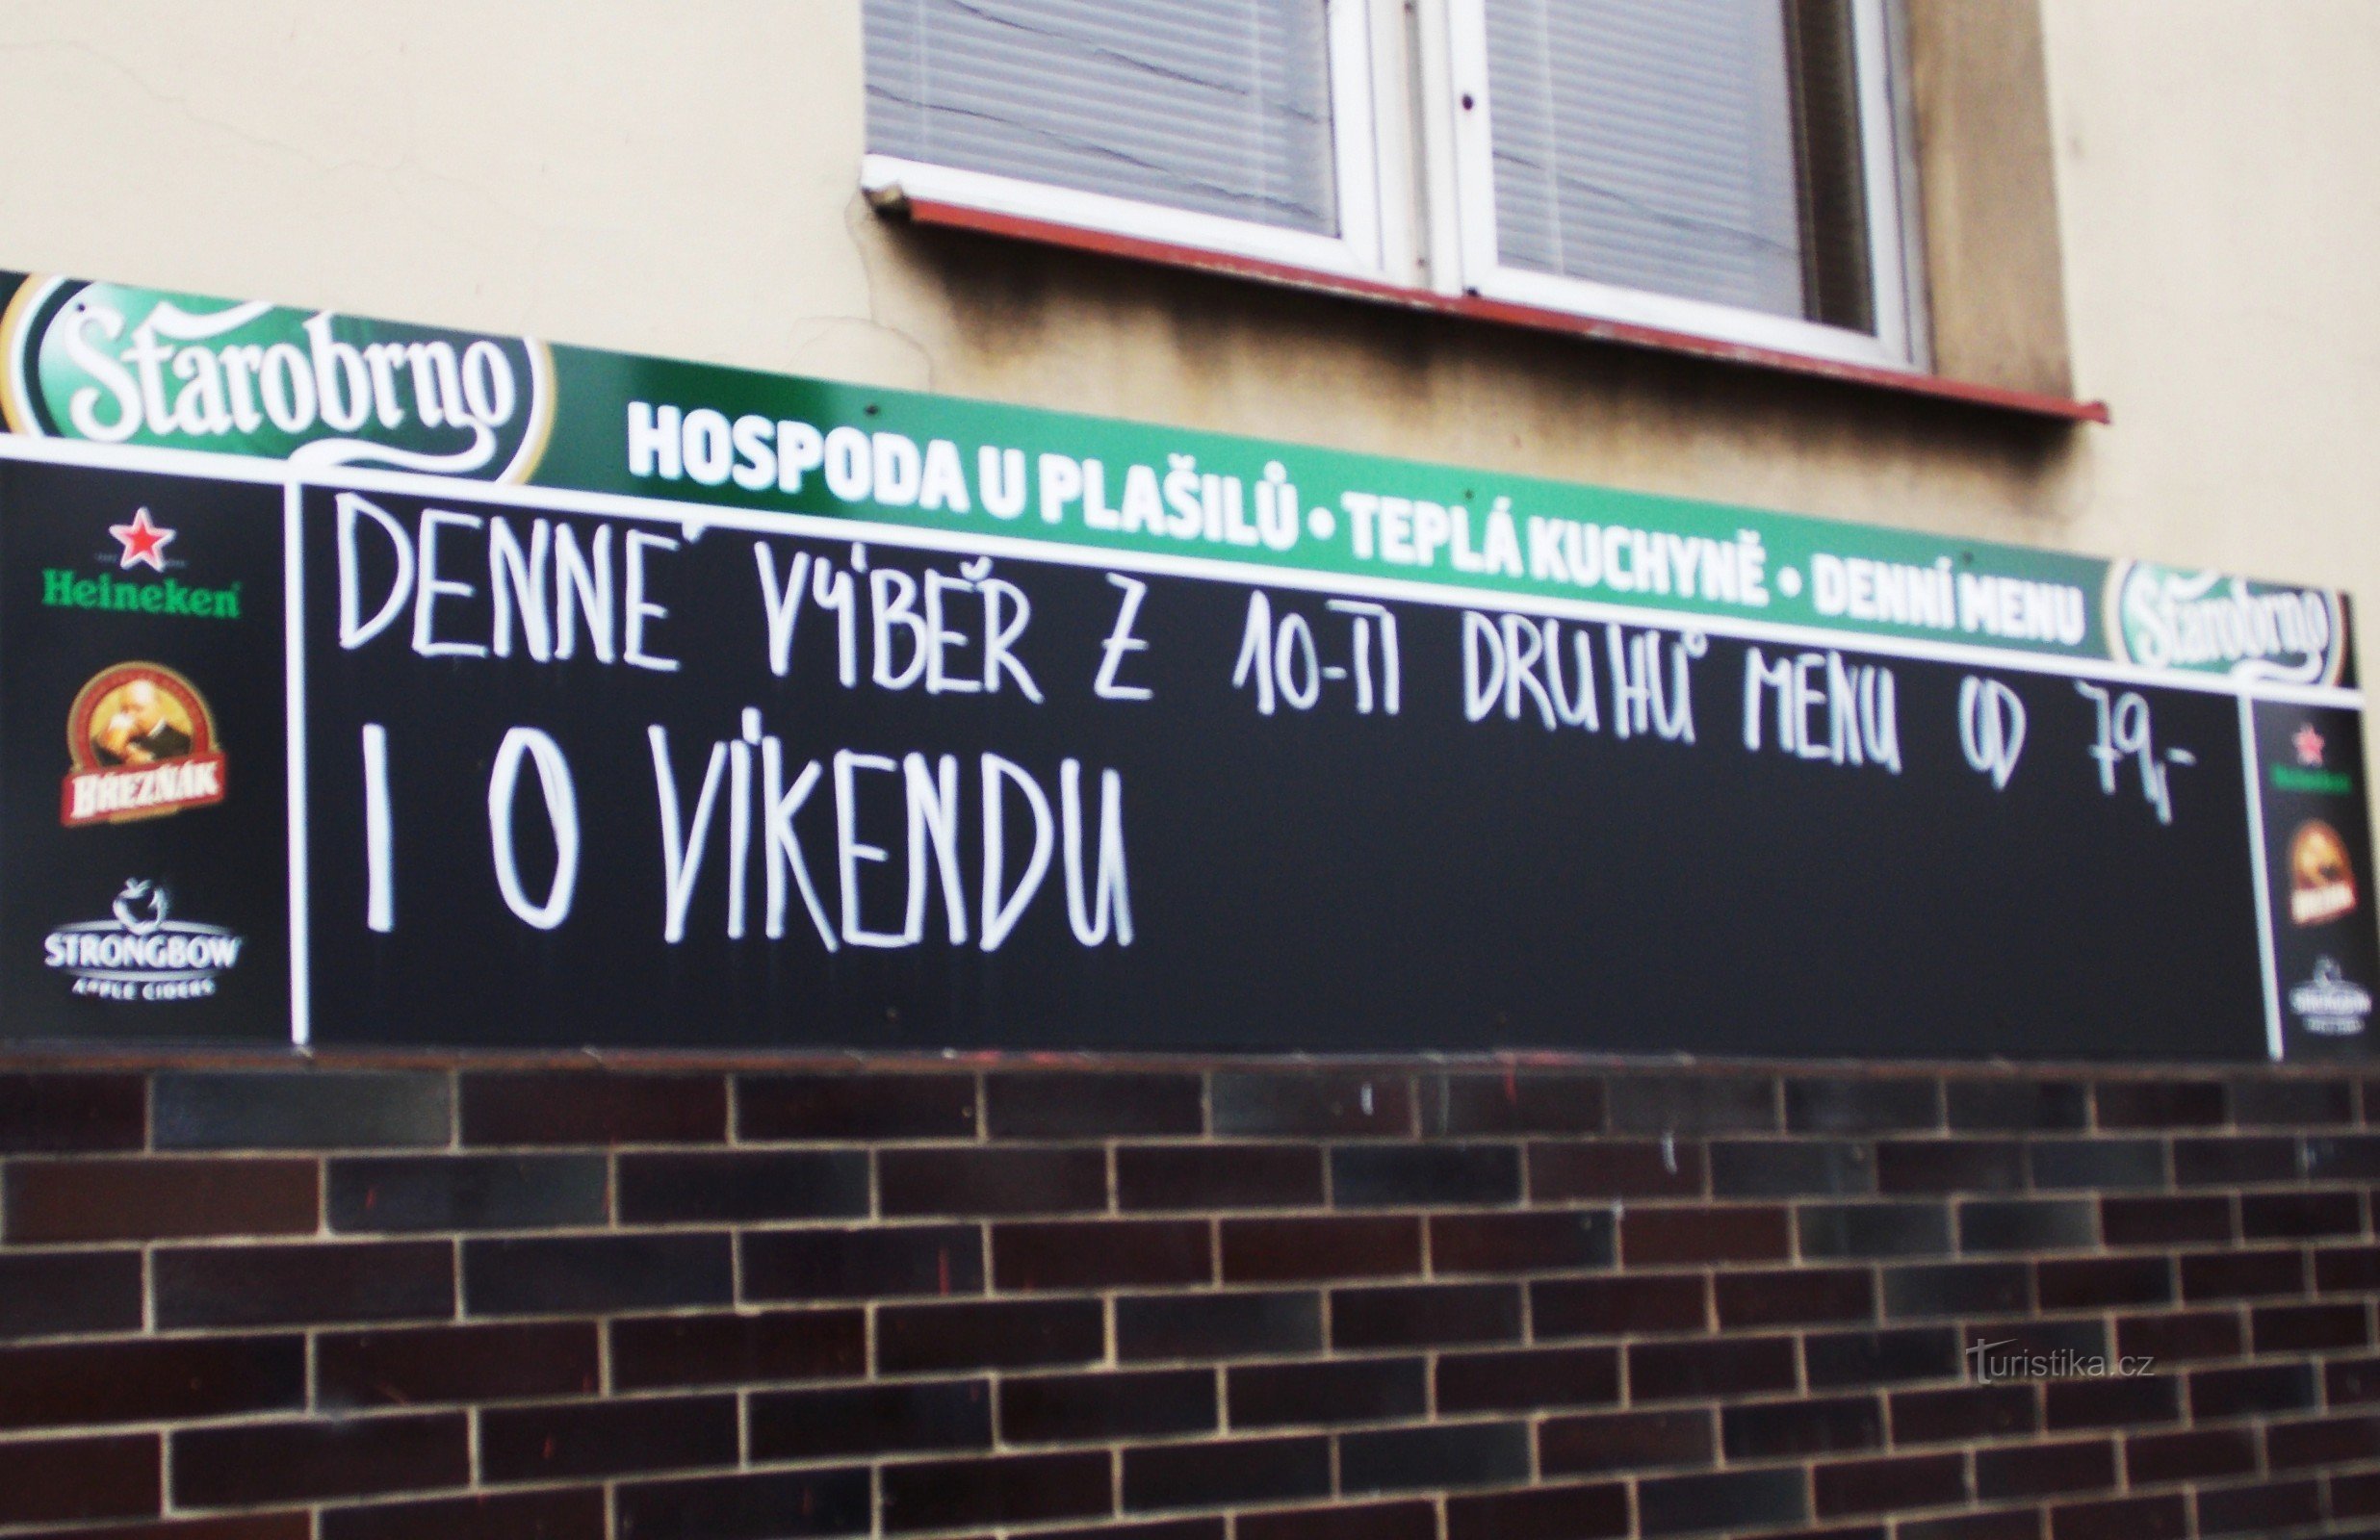 Starobrno HOSPODA U PLAŠILŮ • TEPLÁ KUCHYNĚ • DENNÍ MENU Starobrno
Heineken
BŘEZŇÁK
STRONGBOW
APPLE CIDERS
DENNĚ VÝBĚR Z 10-TI DRUHŮ MENU OD 79,-
I O VÍKENDU
Heineken
BŘEZŇÁK
STRONGBOW
Turistika.cz